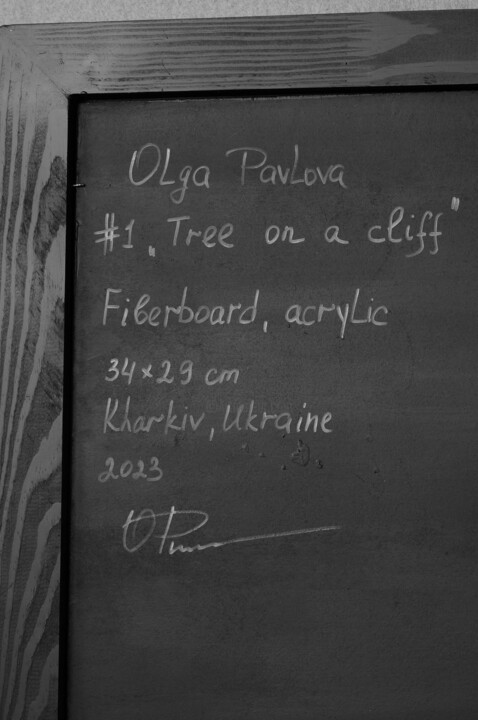 Olga Pavlova
#1 „Tree on a cliff"
Fiberboard, acrylic
34×29 cm
Kharkiv, Ukraine
2023